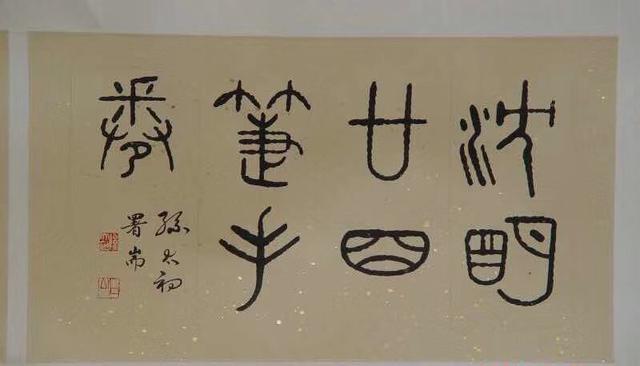 沈明
廿四
筆手
卷
孫太初
署耑